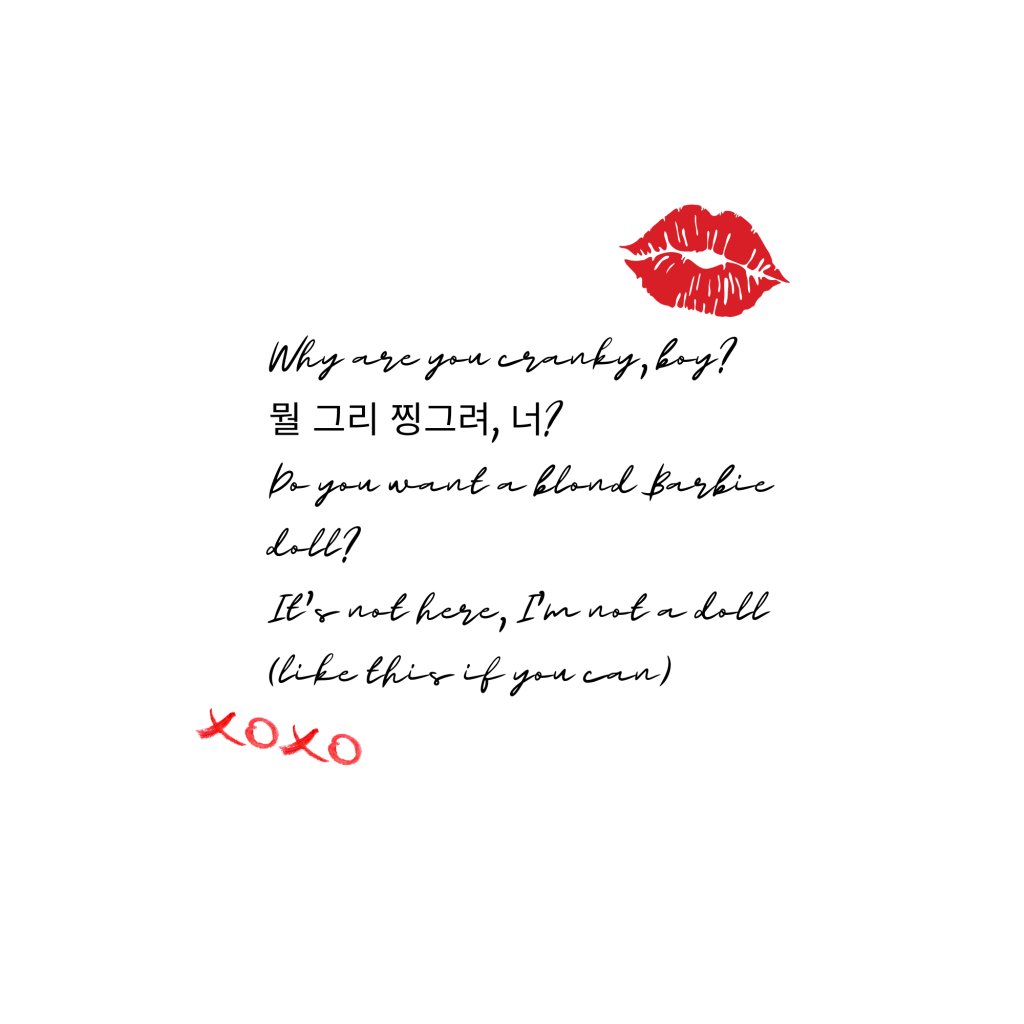 Why are you cranky, boy?
뭘 그리 찡그려, 너?
Do you want a blond Barbie
doll?
It's not here, I'm not a doll
(like this if you can)
XOXO